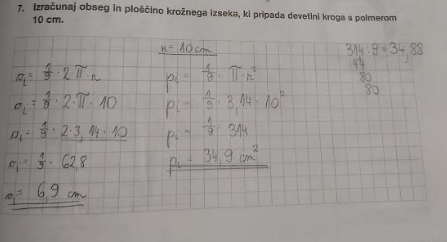 7. Izračunaj obseg in ploščino krožnega izseka, ki pripada devetini kroga s polmerom
10 cm.
r = 10 cm
oᵢ = 1/9 · 2 · π · r
oᵢ = 1/9 · 2 · π · 10
oᵢ = 1/9 · 2 · 3,14 · 10
oᵢ = 1/9 · 62,8
oᵢ = 6,9 cm
pᵢ = 1/9 · π · r²
pᵢ = 1/9 · 3,14 · 10²
pᵢ = 1/9 · 314
pᵢ = 34,9 cm²
314 : 9 = 34,88
44
80
80